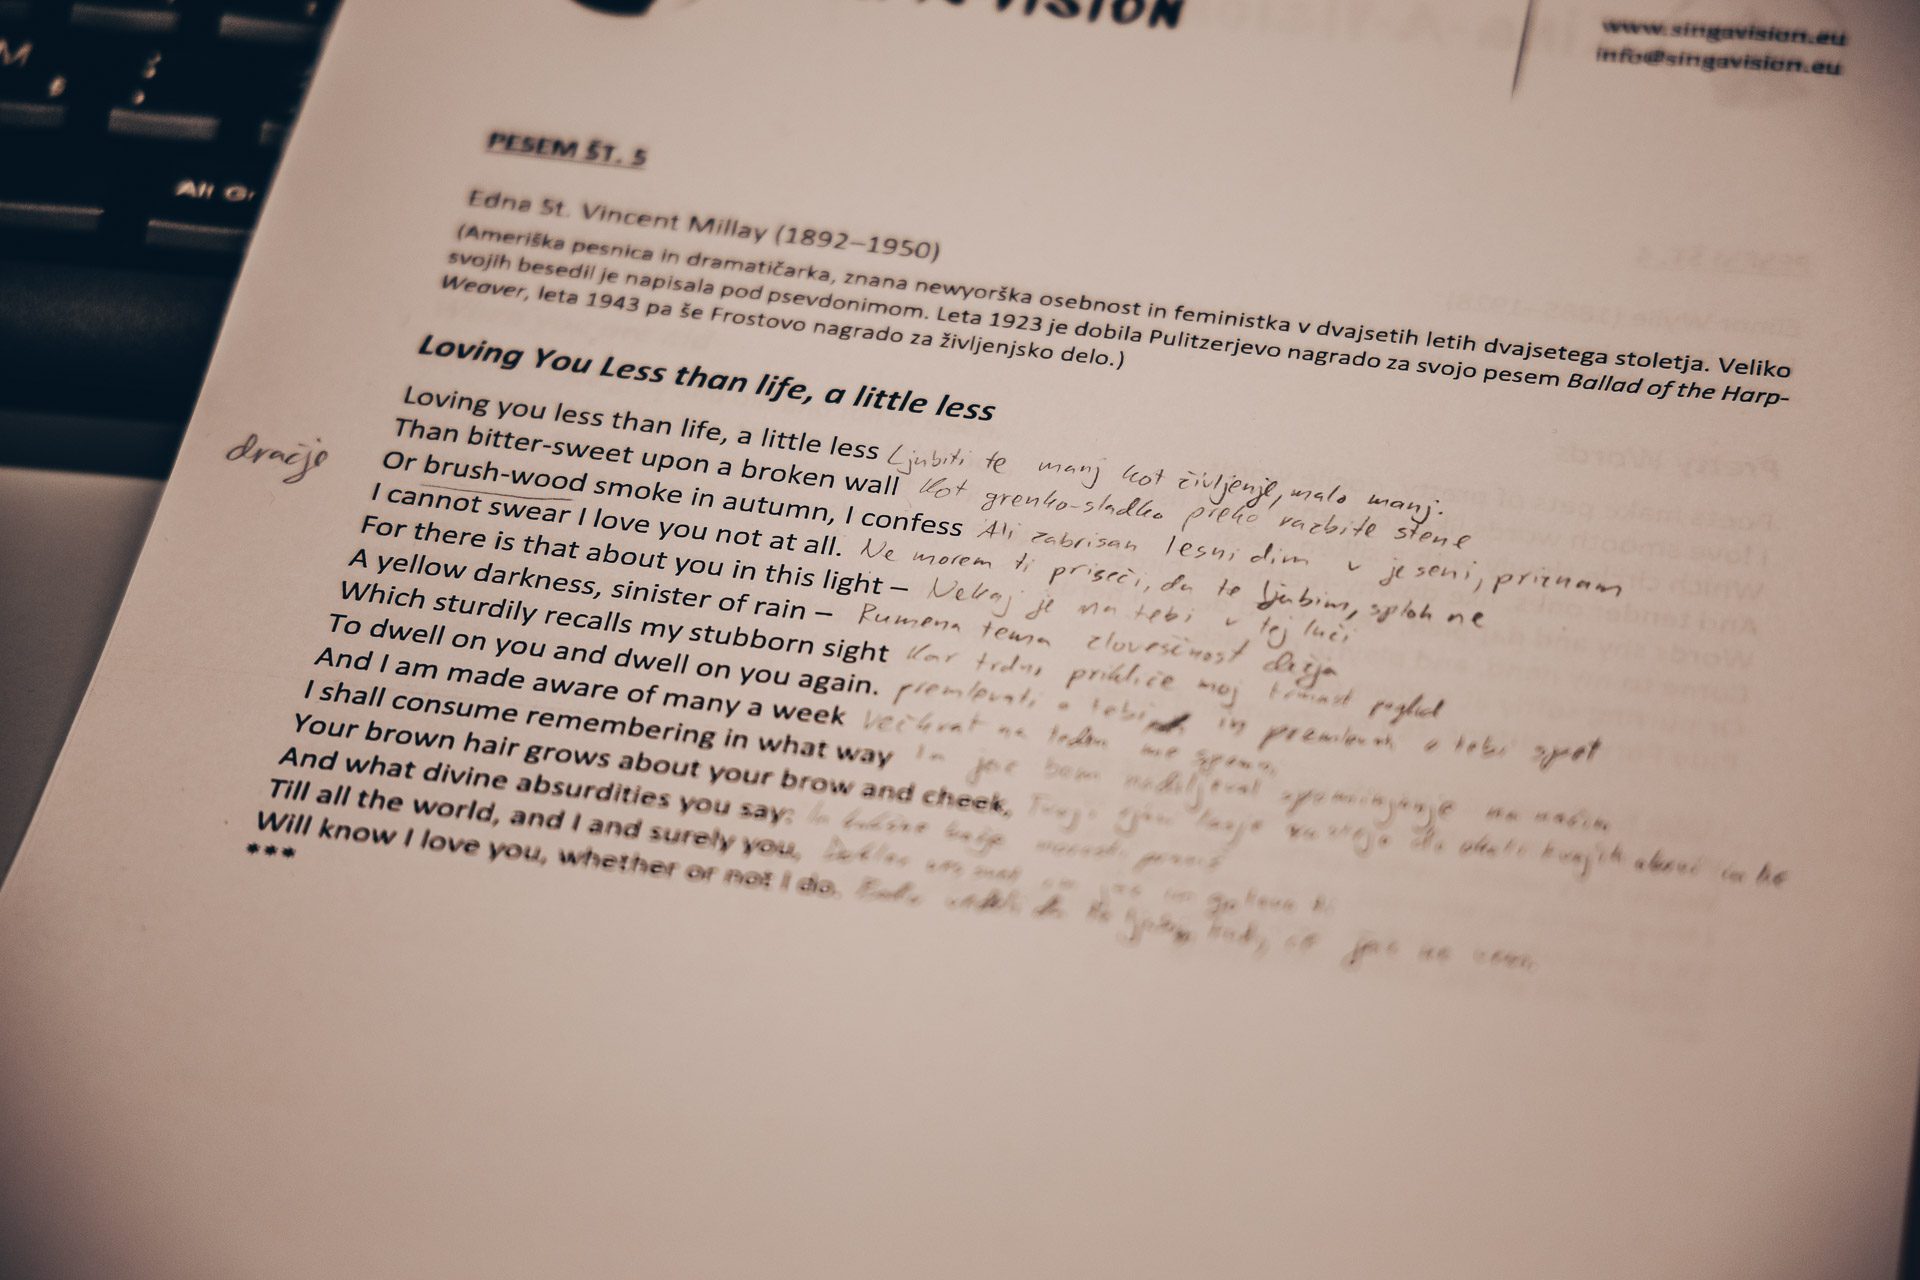 VISION
www.singavision.eu
info@singavision.eu
M
Alt Gr
PESEM ŠT. 5
Edna St. Vincent Millay (1892–1950)
(Ameriška pesnica in dramatičarka, znana newyorška osebnost in feministka v dvajsetih letih dvajsetega stoletja. Veliko
svojih besedil je napisala pod psevdonimom. Leta 1923 je dobila Pulitzerjevo nagrado za svojo pesem Ballad of the Harp-
Weaver, leta 1943 pa še Frostovo nagrado za življenjsko delo.)
Loving You Less than life, a little less
Loving you less than life, a little less Ljubiti te manj kot življenje, malo manj.
Than bitter-sweet upon a broken wall Kot grenko-sladko preko razbite stene
dračje
Or brush-wood smoke in autumn, I confess Ali zabrisan lesni dim v jeseni, priznam
I cannot swear I love you not at all. Ne morem ti priseči, da te ljubim, sploh ne
For there is that about you in this light – Nekaj je na tebi v tej luči
A yellow darkness, sinister of rain – Rumena tema zloveščnost dežja
Which sturdily recalls my stubborn sight Kar trdno prikliče moj pogled
To dwell on you and dwell on you again. premlevati o tebi in premlevati o tebi spet
And I am made aware of many a week Večkrat na teden me
I shall consume remembering in what way jaz bom spominjanje na način
Your brown hair grows about your brow and cheek, Tvoji
And what divine absurdities you say:
Till all the world, and I and surely you,
Will know I love you, whether or not I do. da te ljubim, jaz ne
***